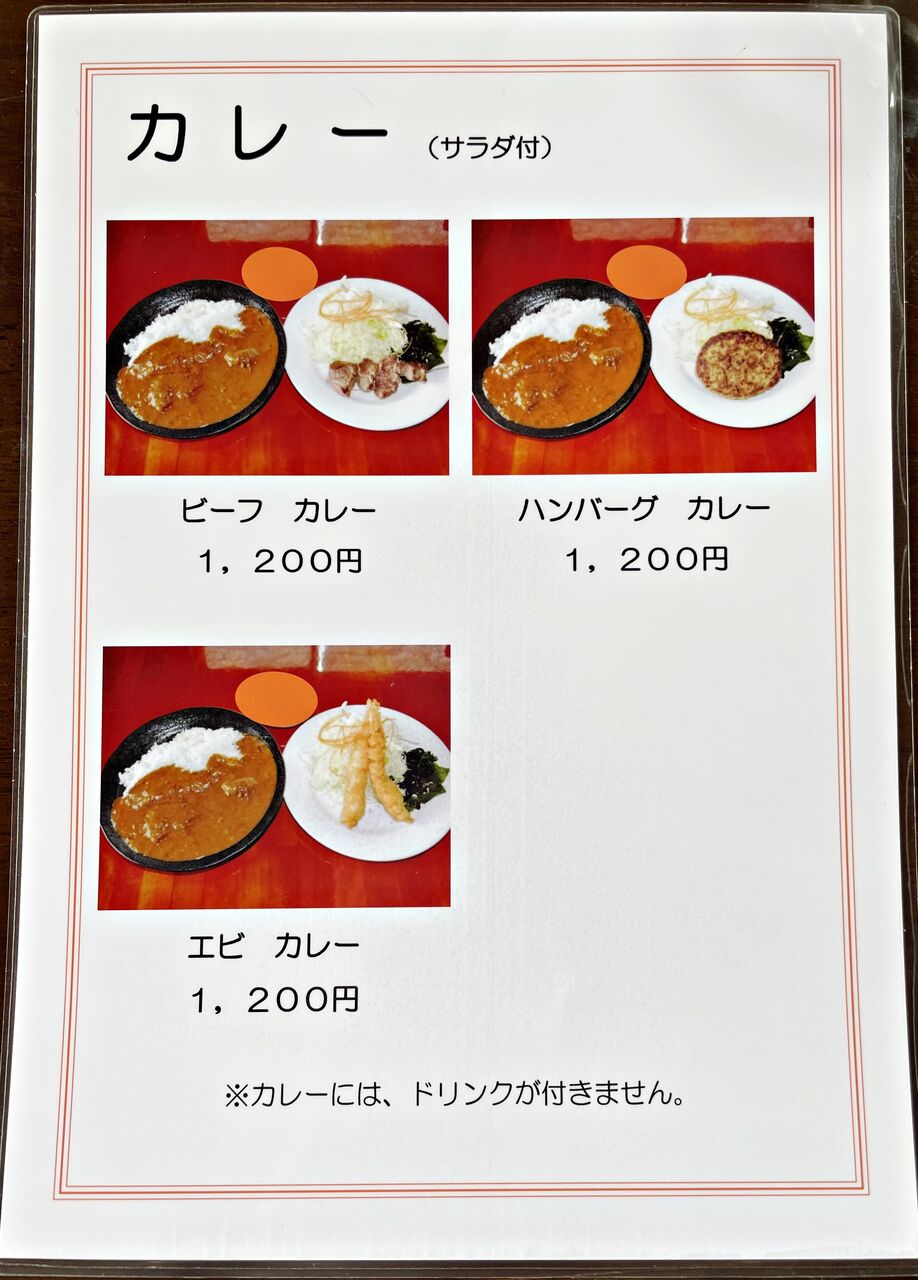 カレー （サラダ付）
ビーフ　カレー
１，２００円
ハンバーグ　カレー
１，２００円
エビ　カレー
１，２００円
※カレーには、ドリンクが付きません。